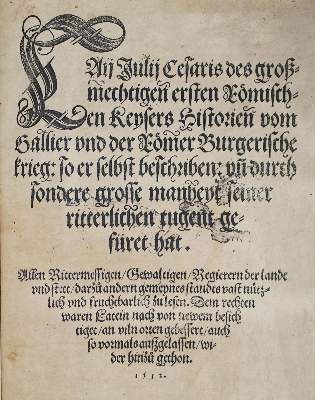 Caij Julij Cesaris des groß-
mechtigen ersten Römisch-
en Keysers Historien vom
Gallier vnd der Römer Burgerische
krieg: so er selbst beschriben: vñ durch
sondere grosse manheyt seiner
ritterlichen tugent ge-
füret hat.
Allen Rittermessigen/ Gewaltigen/ Regierern der lande
vnd stett/ darzů andern gemeynes standes vast nütz-
lich vnd fruchtbarlich zů lesen. Dem rechten
waren Latein nach von newem besich
tiget/ an viln orten gebessert/ auch
so vormals außgelassen/ wi-
der hinzů gethon.